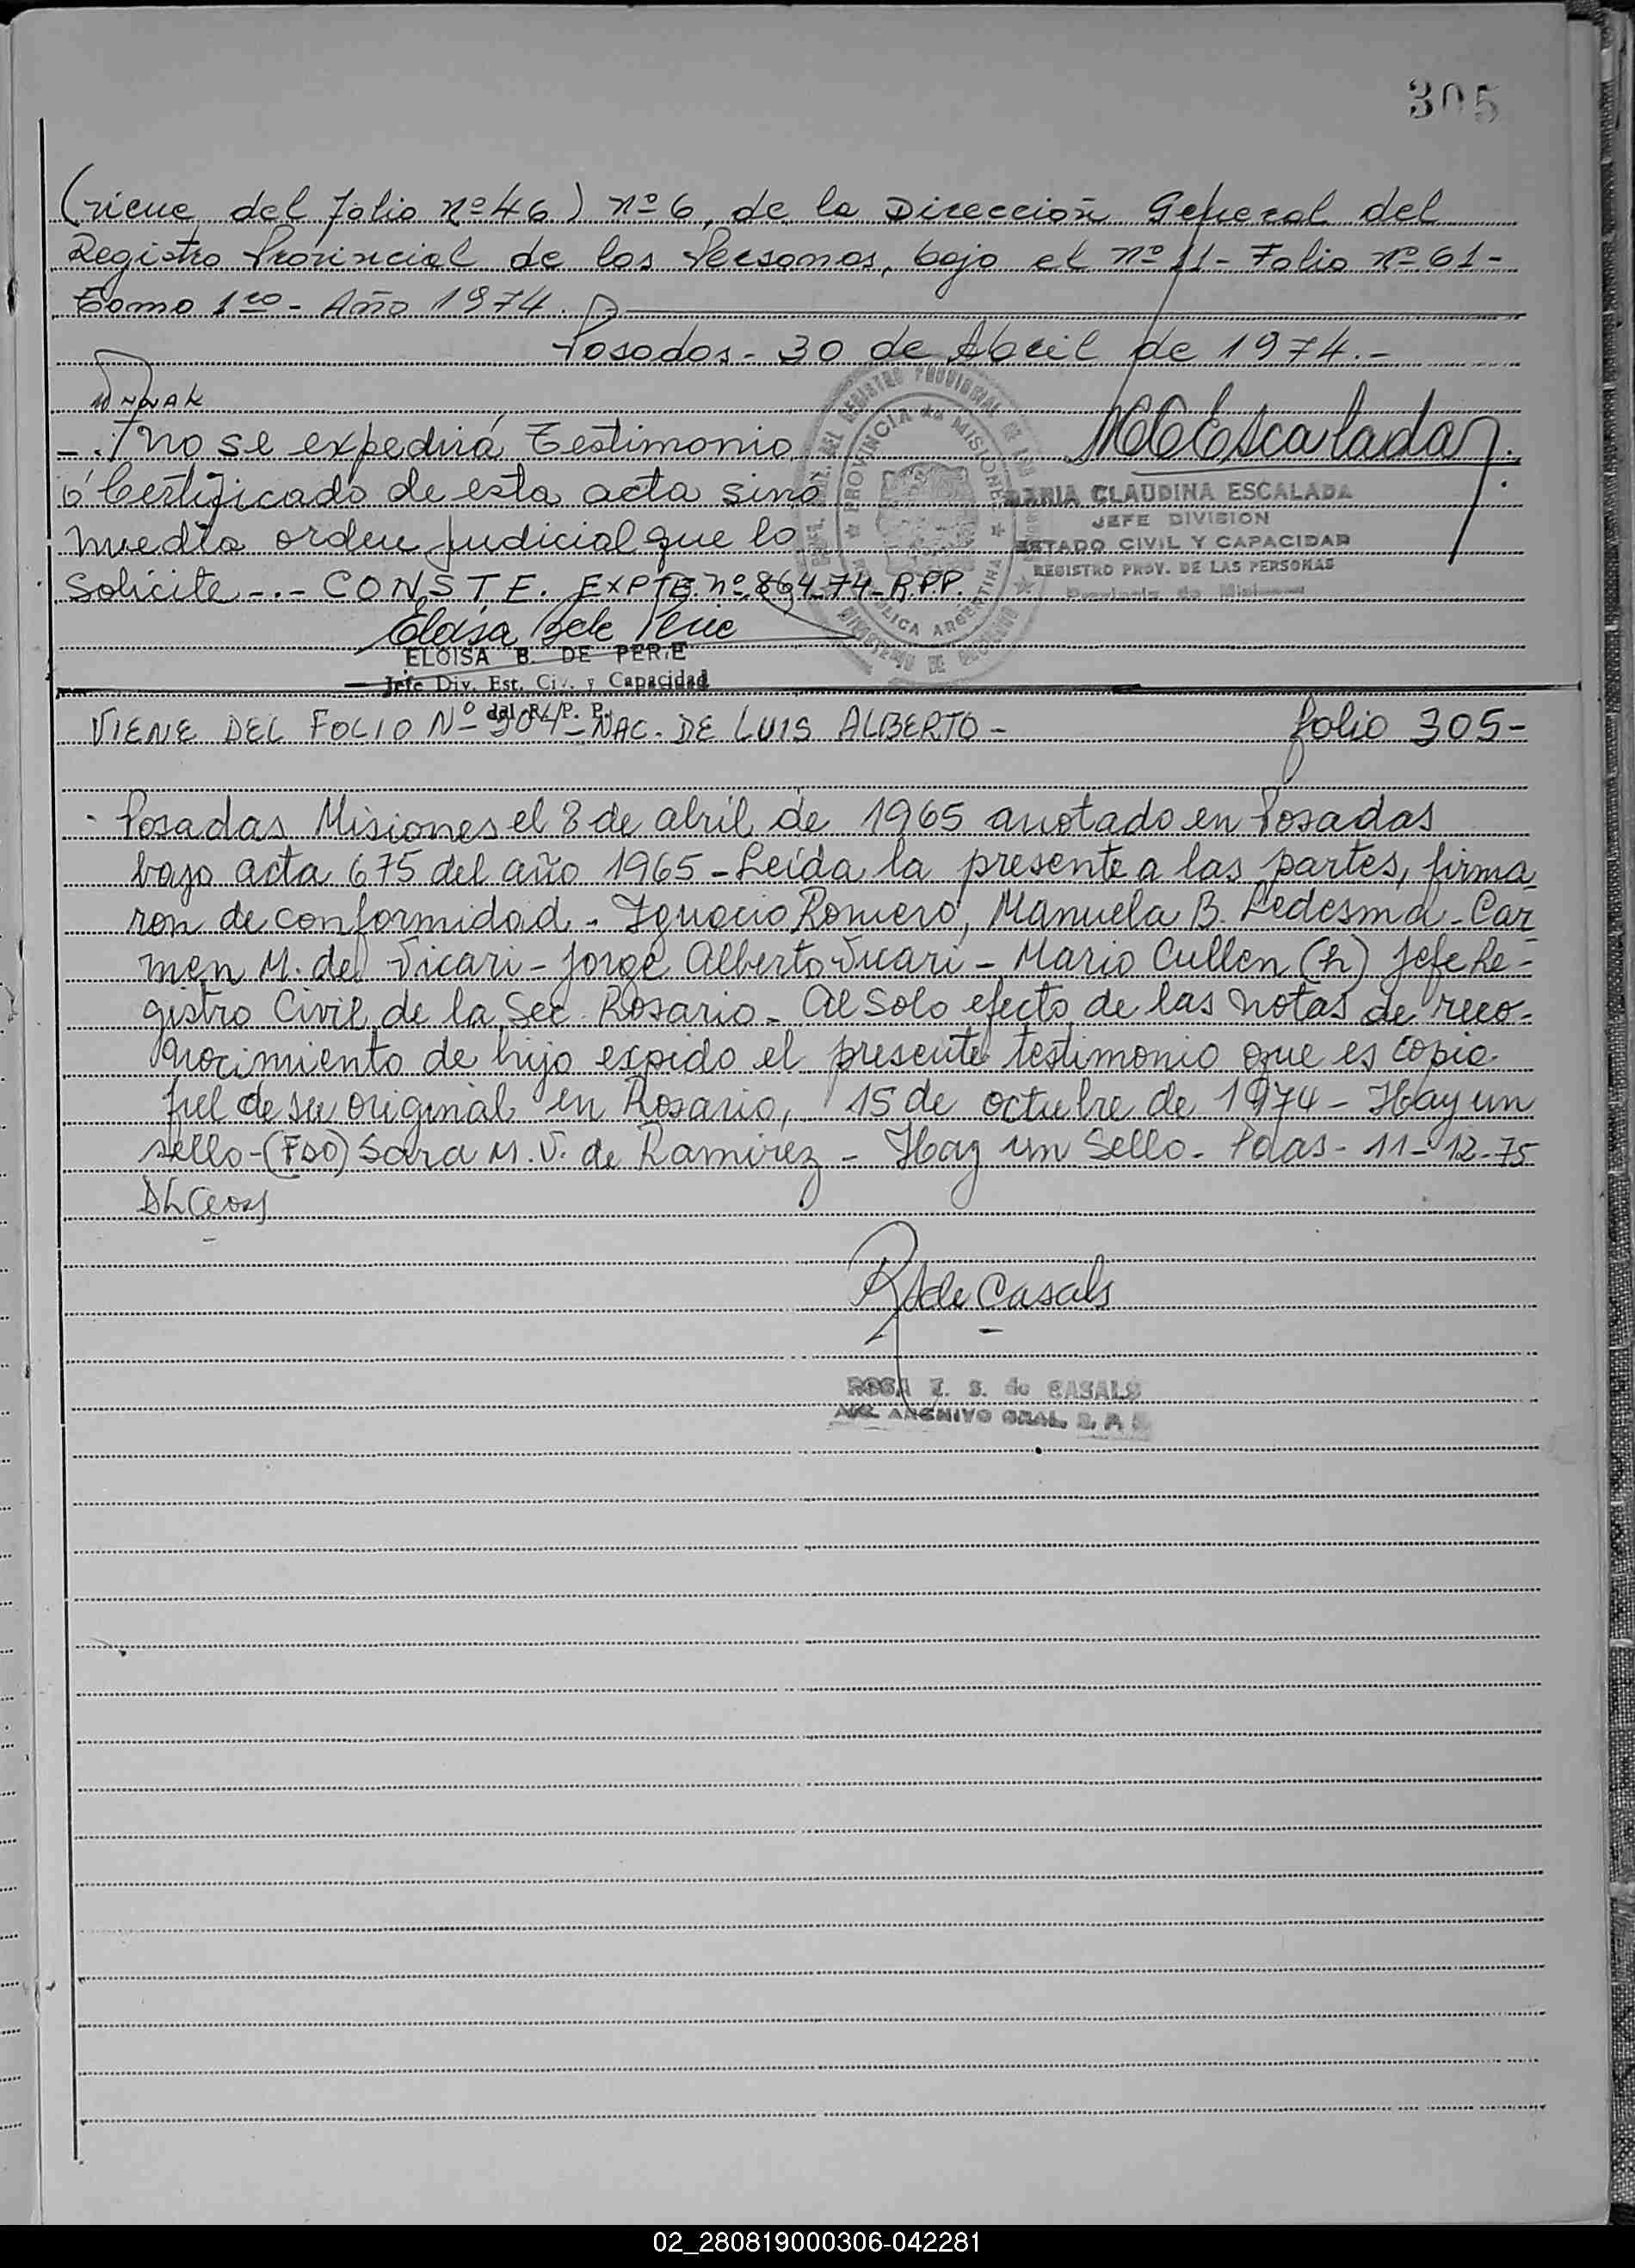 305
(viene del folio nº 46) nº 6, de la Dirección General del
Registro Provincial de las Personas, bajo el nº 11 - Folio nº 61 -
Tomo 1ro - Año 1974.
Posadas - 30 de Abril de 1974.-
-.No se expedirá Testimonio
ó Certificado de esta acta sino
media orden judicial que lo
Solicite -.- CONSTE. EXPTE. nº 864-74-R.P.P.
MCEscalada
MARIA CLAUDINA ESCALADA
JEFE DIVISION
ESTADO CIVIL Y CAPACIDAD
REGISTRO PROV. DE LAS PERSONAS
Provincia de Misiones
PROVINCIA de MISIONES
REPUBLICA ARGENTINA
ELOISA B. DE PERIE
Jefe Div. Est. Civ. y Capacidad
del R. P. P.
VIENE DEL FOLIO Nº 304 - NAC. DE LUIS ALBERTO - folio 305-
- Posadas Misiones el 8 de abril de 1965 anotado en Posadas
bajo acta 675 del año 1965 - Leída la presente a las partes, firma-
ron de conformidad - Ignacio Romero, Manuela B. Ledesma - Car
men M. de Vicari - Jorge Alberto Vicari - Mario Cullen (h) Jefe Re-
gistro Civil de la Sec. Rosario - Al Solo efecto de las notas de reco-
nocimiento de hijo expido el presente testimonio que es copia
fiel de su original en Rosario, 15 de octubre de 1974 - Hay un
sello - (FDO) Sara M. V. de Ramirez - Hay un Sello - Pdas - 11-12-75
R de Casals
ROSA Z. S. de CASALS
ARCHIVO GRAL.
02_280819000306-042281